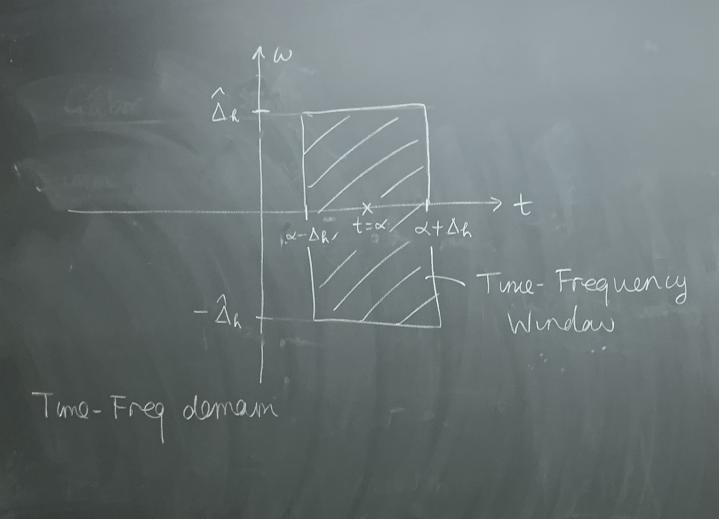 ω
Δ̂ₕ
t
α-Δₕ t=α α+Δₕ
-Δ̂ₕ
Time-Frequency
Window
Time-Freq domain